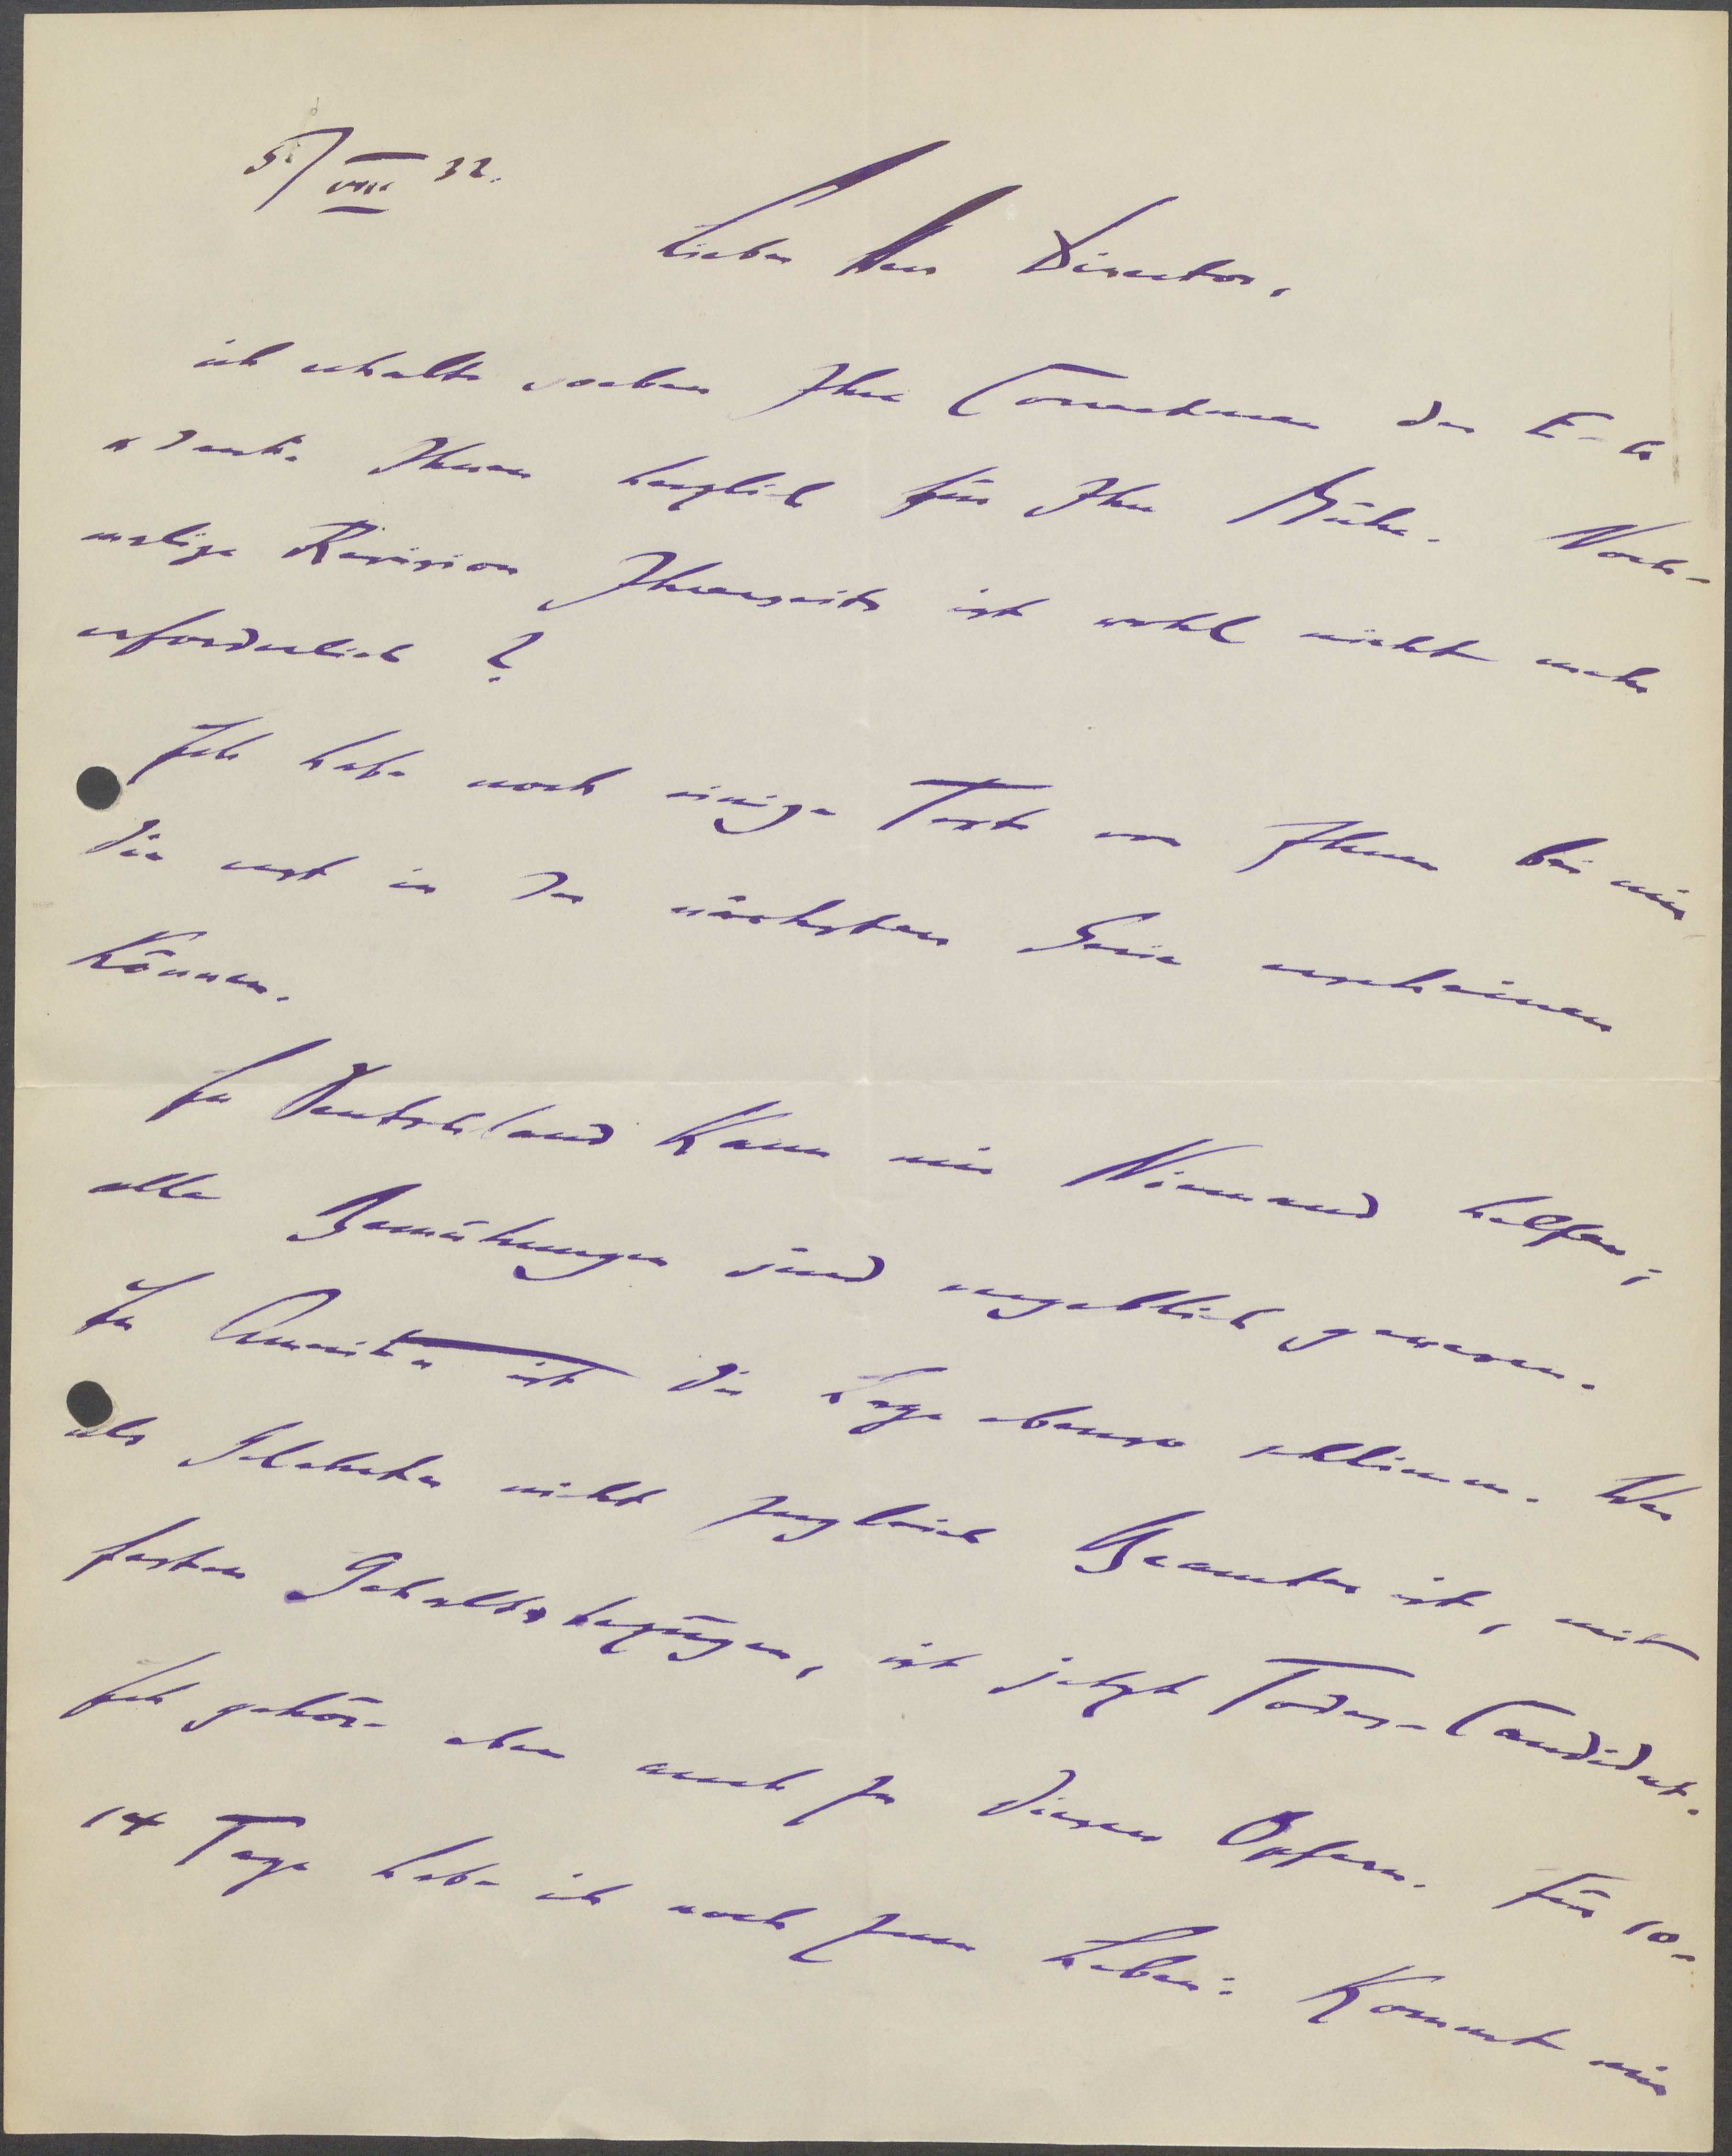 5/VIII 32.
Lieber Herr Director,
ich erhalte soeben Ihre Correcturen der E-
u danke Ihnen herzlich für Ihre Mühe. Noch-
malige Revision Ihrerseits ist wohl nicht mehr
erforderlich?
Ich habe noch einige Texte von Ihnen bei mir,
die erst in der nächsten Serie erscheinen
können.
In Deutschland kann mir Niemand helfen;
alle Bemühungen sind vergeblich gewesen.
In Amerika ist die Lage ebenso schlimm. Wer
als Gelehrter nicht zugleich Beamter ist, mit
festen Gehaltsbezügen, ist jetzt Todes-Candidat.
Ich gehöre eben auch zu diesen Opfern. Für 10-
14 Tage habe ich noch zum Leben: Kommt mir